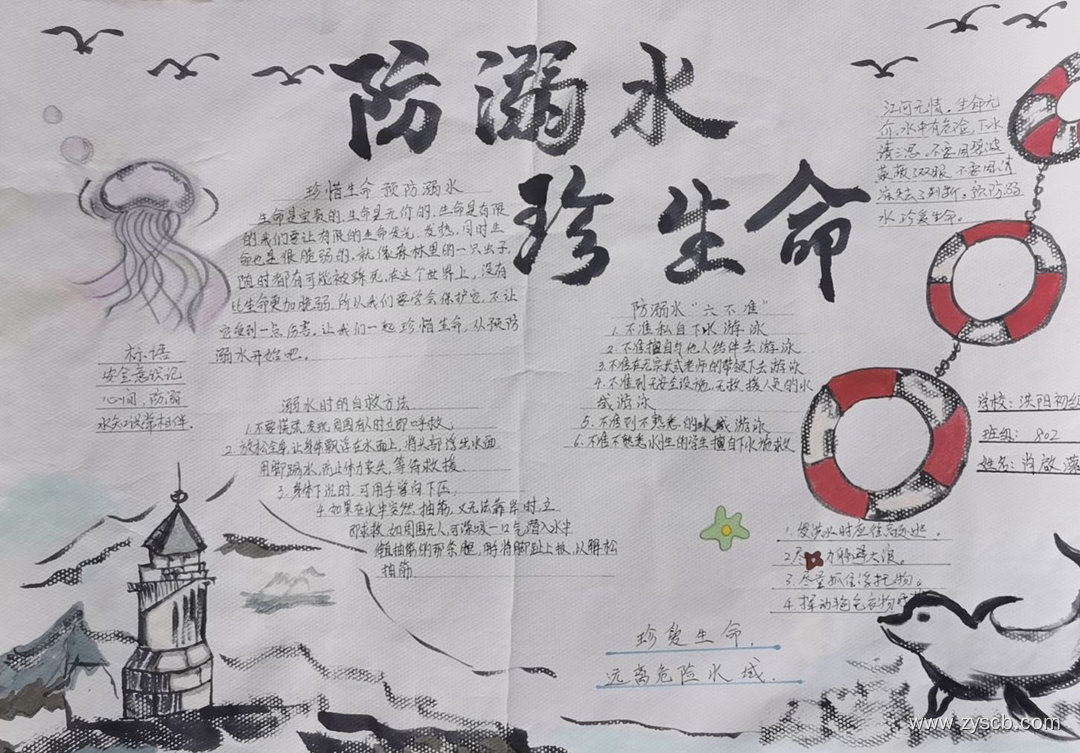 防溺水
珍生命
珍惜生命 预防溺水
生命是宝贵的,生命是无价的,生命是有限
的我们要让有限的生命发光,发热,同时生
命也是很脆弱的,就像森林里的一只虫子,
随时都有可能被踩死,在这个世界上,没有
比生命更加脆弱,所以我们要学会保护它,不让
它受到一点伤害。让我们一起珍惜生命,从预防
溺水开始吧。
标语
安全意识记
心间,防溺
水知识常相伴.
溺水时的自救方法.
1.不要慌张,发现周围有人时立即呼救.
2.放松全身,让身体飘浮在水面上,将头部浮出水面
用脚踢水,防止体力丧失,等待救援.
3.身体下沉时,可用手掌向下压.
4.如果在水中突然抽筋,又无法靠岸时,立
即求救,如周围无人,可深吸一口气潜入水中
伸直抽筋的那条腿,用手将脚趾上扳,以解松
抽筋
防溺水"六不准"
1.不准私自下水游泳
2.不准擅自与他人结伴去游泳
3.不准在无家长或老师的带领下去游泳
4.不准到无安全设施,无救援人员的水
域游泳
5.不准到不熟悉的水域游泳
6.不准不熟悉水性的学生擅自下水施救
江河无情,生命无
价,水中有危险,下水
请三思,不要因
双眼,不要因清
凉失去了判断。预防溺
水珍爱生命。
学校:洪阳初级
班级:802
姓名:肖啟
1.
2.尽力躲避大浪。
3.尽量抓住漂浮物。
4.挥动艳色衣物
珍爱生命.
远离危险水域.
www.zyscb.com